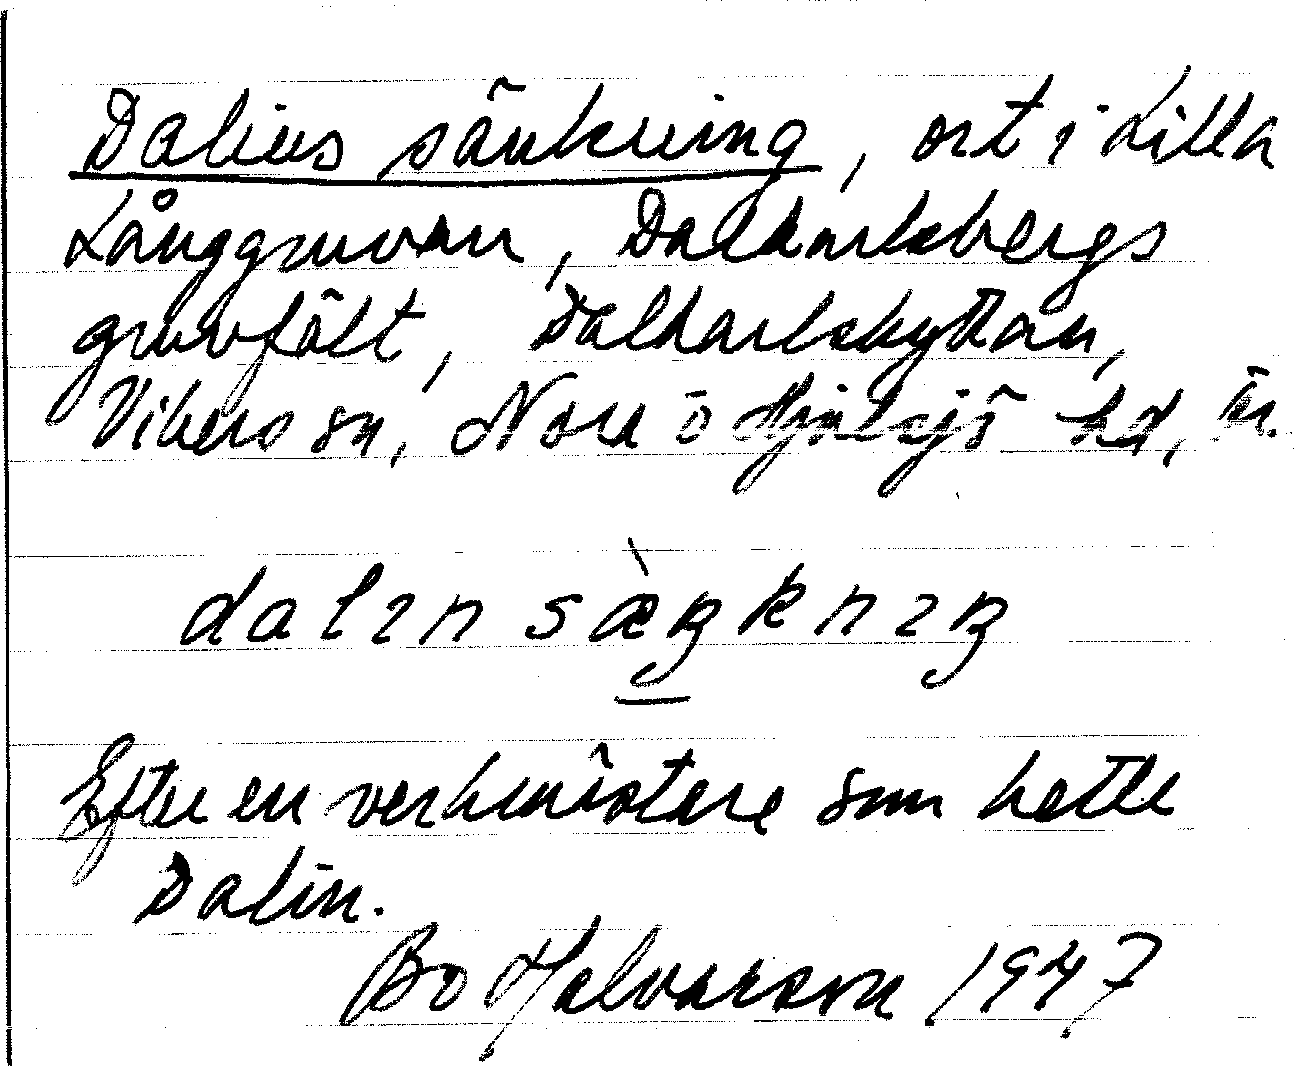 Dalins sänkning, ort i Lilla
Långgruvan, Dalkarlsbergs
gruvfält, Dalkarlshyttan,
Vikers sn, Nora o Hjulsjö hd, Ör.
dalɩn sæ̀ŋknɩŋ
Efter en verkmästare som hette
Dalin.
Bo Halvarson 1947